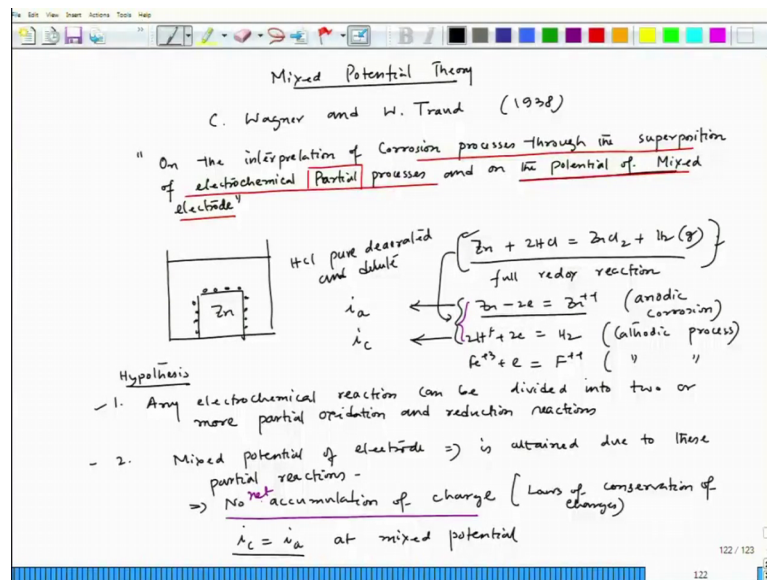 File Edit View Insert Actions Tools Help
Mixed Potential Theory
C. Wagner and W. Traud (1938)
" On the interpretation of Corrosion processes through the superposition
of electrochemical Partial processes and on the potential of Mixed
electrode"
HCl pure deaerated
and dilute
Zn
Zn + 2HCl = ZnCl2 + H2 (g)
full redox reaction
ia ← Zn - 2e = Zn++ (anodic corrosion)
ic ← 2H+ + 2e = H2 (Cathodic process)
Fe+3 + e = F++ ( " " )
Hypothesis
- 1. Any electrochemical reaction can be divided into two or
more partial oxidation and reduction reactions
- 2. Mixed potential of electrode => is attained due to these
partial reactions -
=> No net accumulation of charge [Laws of conservation of
charges)
ic = ia at mixed potential
122 / 123
122